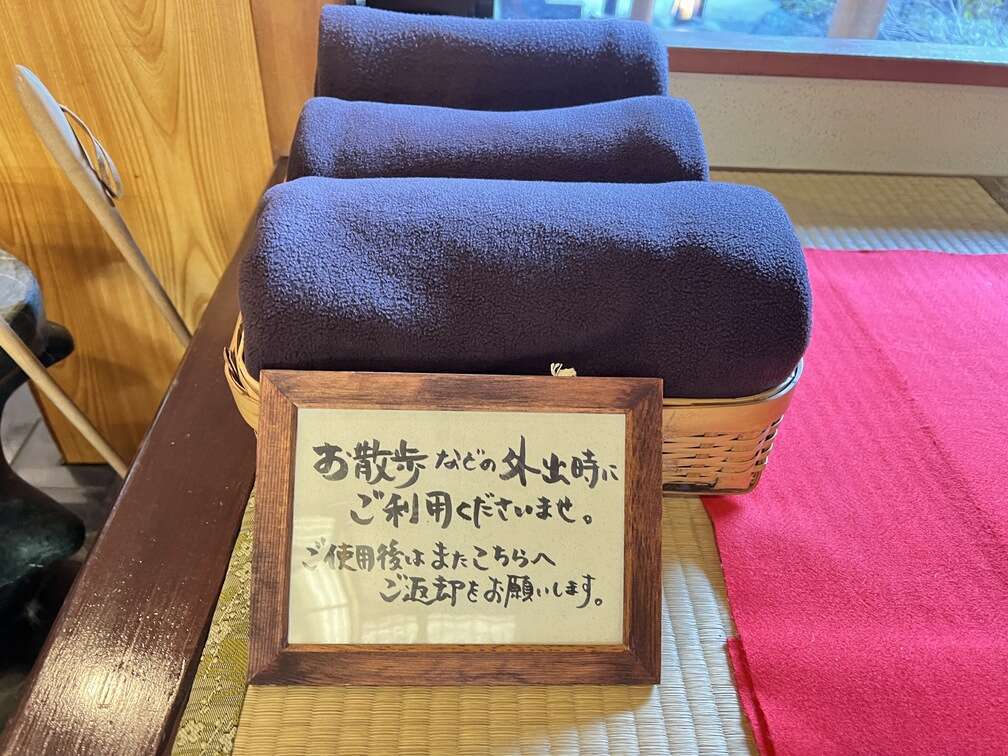 お散歩などの外出時に
ご利用くださいませ。
ご使用後はまたこちらへ
ご返却をお願いします。